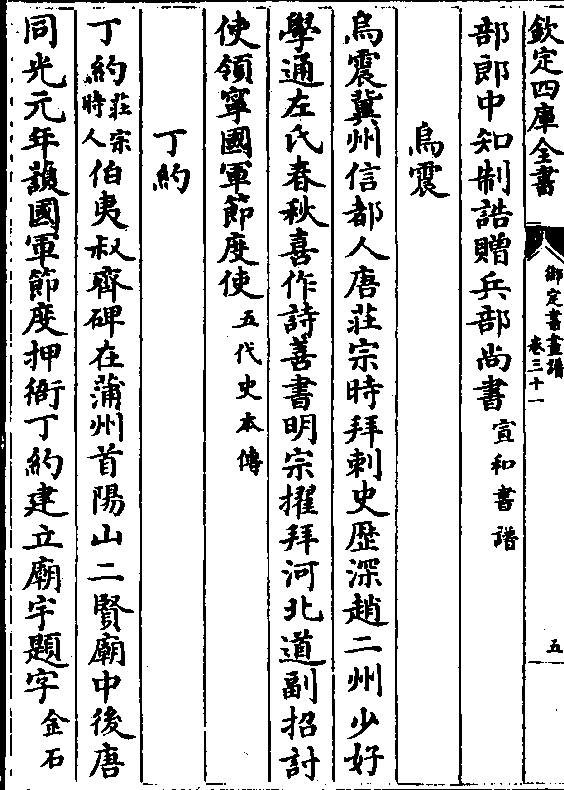 欽定四庫全書
御定書畫譜
卷三十一
五
部郎中知制誥贈兵部尚書宣和書譜
烏震
烏震冀州信都人唐莊宗時拜刺史歴深趙二州少好
學通左氏春秋喜作詩善書明宗擢拜河北道副招討
使領寧國軍節度使五代史本傳
丁約
丁約莊宗時人伯夷叔齊碑在蒲州首陽山二賢廟中後唐
同光元年護國軍節度押衙丁約建立廟宇題字金石